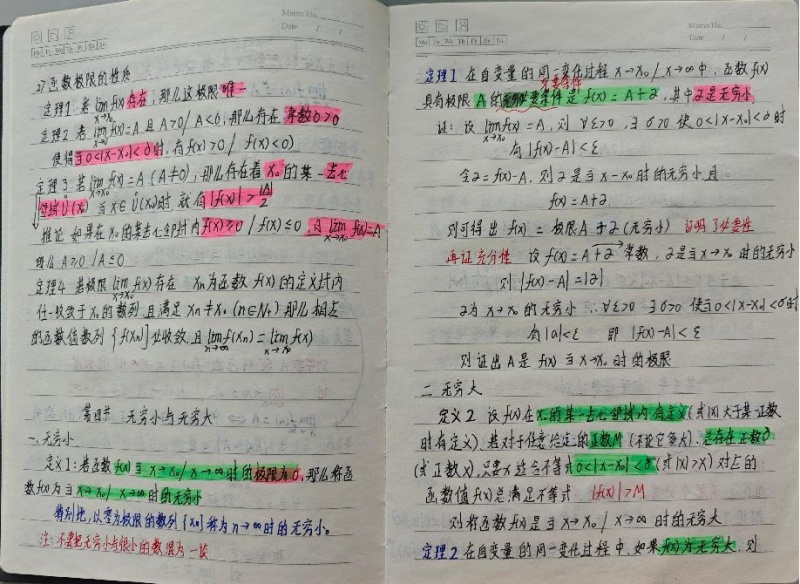 Memo No.
Date / /
Mo Tu We Th Fr Sa Su
2) 函数极限的性质
定理1 若 lim f(x) 存在, 那么这极限唯一
x→x₀
定理2 若 lim f(x)=A 且 A>0 / A<0, 那么存在 常数 δ>0
x→x₀
使得当 0<|x-x₀|<δ 时, 有 f(x)>0 / f(x)<0)
定理3 若 lim f(x)=A (A≠0), 那么存在着 x₀ 的某一去心
x→x₀
邻域 Ů(x₀) 当 x∈Ů(x₀) 时 就有 |f(x)|>|A|/2
推论 如果在 x₀ 的某去心邻域内 f(x)≥0 / f(x)≤0 且 lim f(x)=A
x→x₀
那么 A≥0 / A≤0
定理4 若极限 lim f(x) 存在 xn为函数 f(x) 的定义域内
x→x₀
任一收敛于 x₀ 的数列, 且满足 xn≠x₀ (n∈N₊) 那么相应
的函数值数列 {f(xn)} 必收敛, 且 lim f(xn)=lim f(x)
n→∞ x→x₀
第四节 无穷小与无穷大
一、无穷小
定义1: 若函数 f(x) 当 x→x₀ / x→∞ 时的极限为0, 那么称函
数 f(x) 为当 x→x₀ / x→∞ 时的无穷小
特别地, 以零为极限的数列 {xn} 称为 n→∞ 时的无穷小。
注: 不要把无穷小与很小的数混为一谈
Memo No.
Date / /
Mo Tu We Th Fr Sa Su
定理1 在自变量的同一变化过程 x→x₀ / x→∞ 中, 函数 f(x)
充要条件
具有极限 A 的要条件是 f(x)=A+α, 其中 α 是无穷小
证: 设 lim f(x)=A, 则 ∀ε>0, ∃δ>0 使 0<|x-x₀|<δ 时
x→x₀
有 |f(x)-A|<ε
令 α=f(x)-A, 则 α 是当 x→x₀ 时的无穷小, 且
f(x)=A+α,
则可得出 f(x) = 极限A+α (无穷小) 证明了必要性
再证充分性 设 f(x)=A+α 常数, α 是当 x→x₀ 时的无穷小
则 |f(x)-A|=|α|
α为 x→x₀ 的无穷小 ∴∀ε>0 ∃δ>0 使当 0<|x-x₀|<δ 时
有 |α|<ε 即 |f(x)-A|<ε
则证出 A 是 f(x) 当 x→x₀ 时的极限
二 无穷大
定义2 设 f(x) 在 x₀ 的某一去心邻域内有定义 (或 |x| 大于某一正数
时有定义). 若对于任意给定的正数M (不论它多大), 总存在正数δ
(或正数X), 只要 x 适合不等式 0<|x-x₀|<δ (或 |x|>X) 对应的
函数值 f(x) 总满足不等式 |f(x)|>M
则称函数 f(x) 是当 x→x₀ / x→∞ 时的无穷大
定理2 在自变量的同一变化过程中, 如果 f(x) 为无穷大, 则